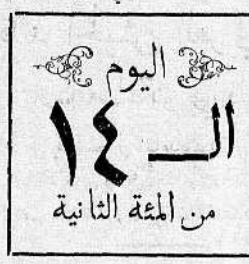 اليوم
الـ ١٤
من المئة الثانية